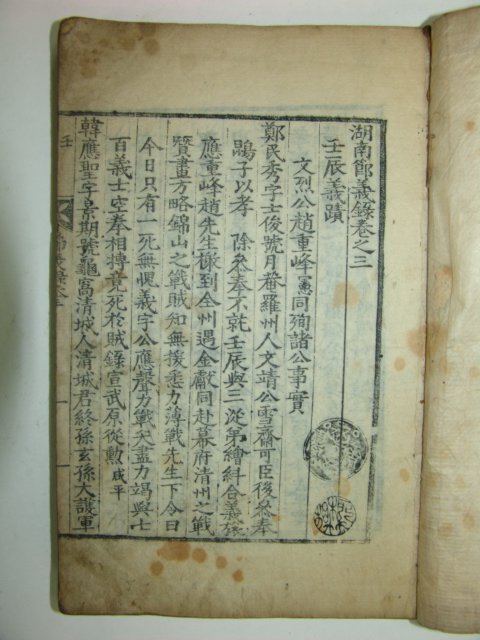 湖南節義錄卷之三
壬辰義蹟
文烈公趙重峰憲同殉諸公事實
鄭民秀字士俊號月菴羅州人文靖公雪齋可臣後叅奉
鵾子以孝除叅奉不就壬辰與三從弟繪糾合義旅
應重峰趙先生檄到全州遇金獻同赴幕府清州之戰
贊畫方略錦山之戰賊知無援悉力薄戰先生下令曰
今日只有一死無愧義字公應聲力戰矢盡力竭與七
百義士空拳相搏竟死於賊錄宣武原從勳 咸平
韓應聖字景期號龜窩清城人清城君終孫玄孫大護軍
壬